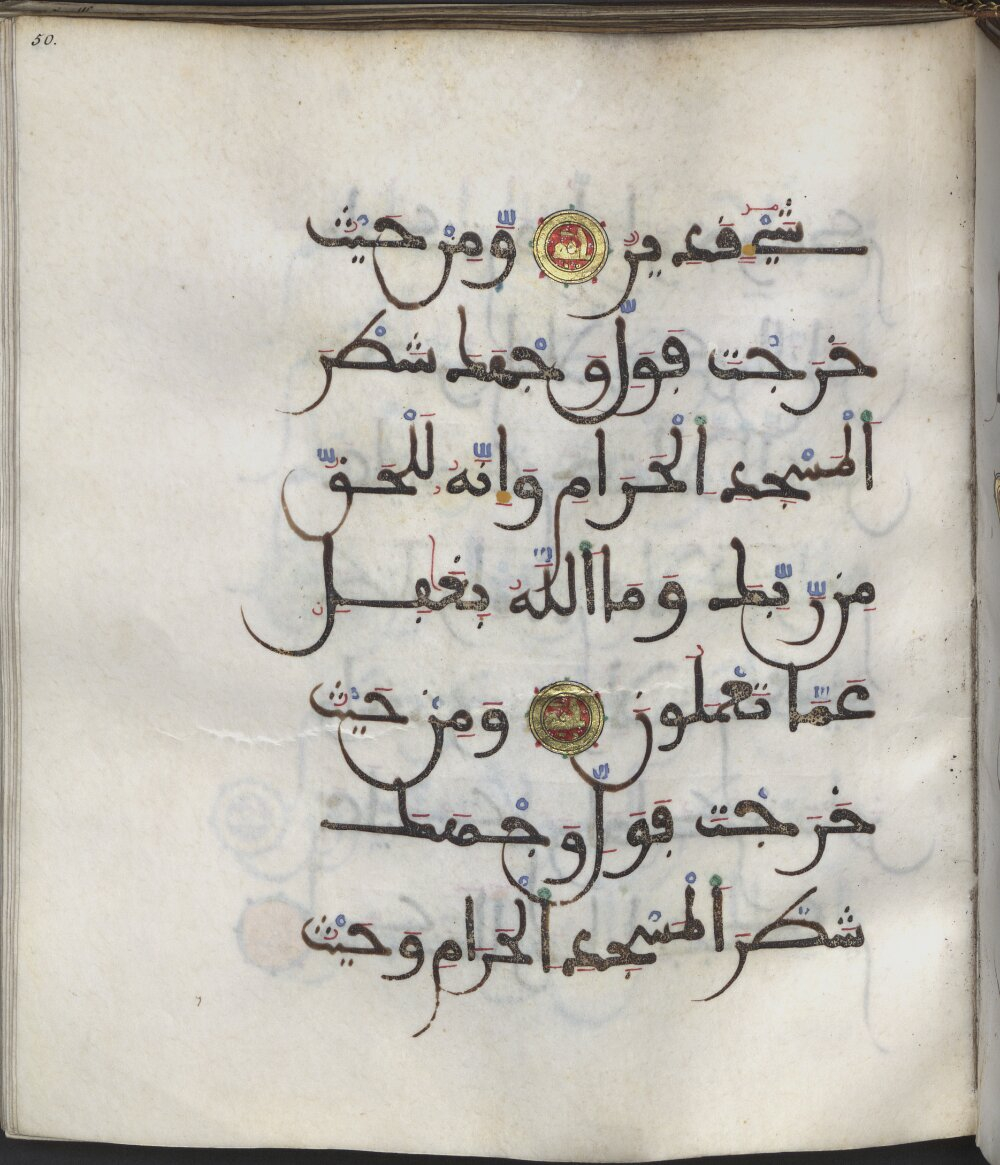 50.
شَيْءٍ قَدِيرٌ وَّمِنْ حَيْثُ
خَرَجْتَ فَوَلِّ وَجْهَكَ شَطْرَ
اَلْمَسْجِدِ اِلْحَرَامِ وَإِنَّهُۥ لَلْحَقُّ
مِن رَّبِّكَ وَمَا اَللَّهُ بِغَٰفِلٍ
عَمَّا تَعْمَلُونَ وَمِنْ حَيْثُ
خَرَجْتَ فَوَلِّ وَجْهَكَ
شَطْرَ اَلْمَسْجِدِ اِلْحَرَامِ وَحَيْثُ